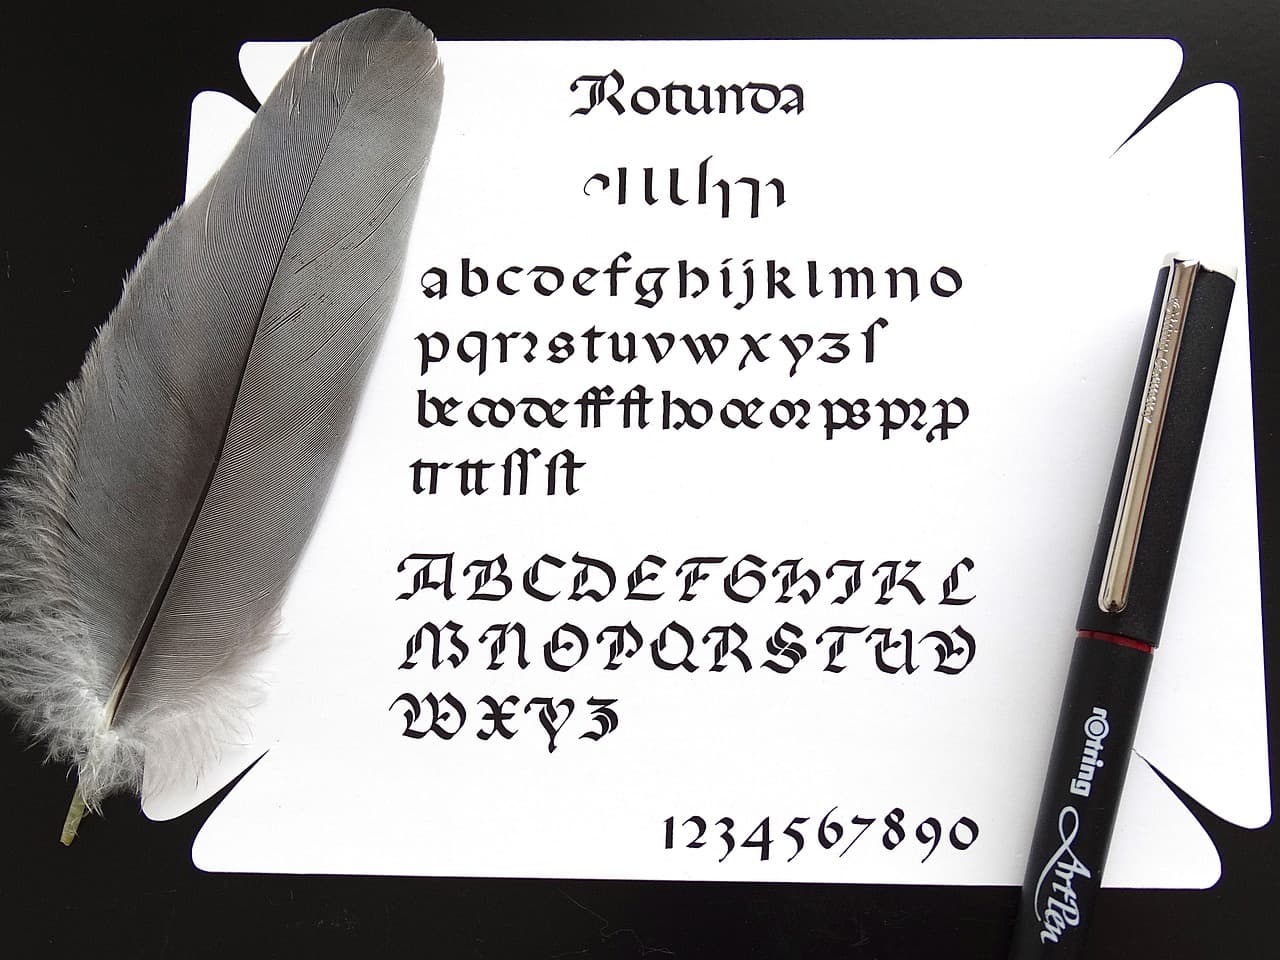 Rotunda
a b c d e f g h i j k l m n o
p q r ꝛ s t u v w x y z ſ
be co de ff ft ho œ oꝛ ps pꝛ ꝓ
tr tt ſſ ſt
A B C D E F G H I K L
M N O P Q R S T U V
W X Y Z
1 2 3 4 5 6 7 8 9 0
rotring ArtPen